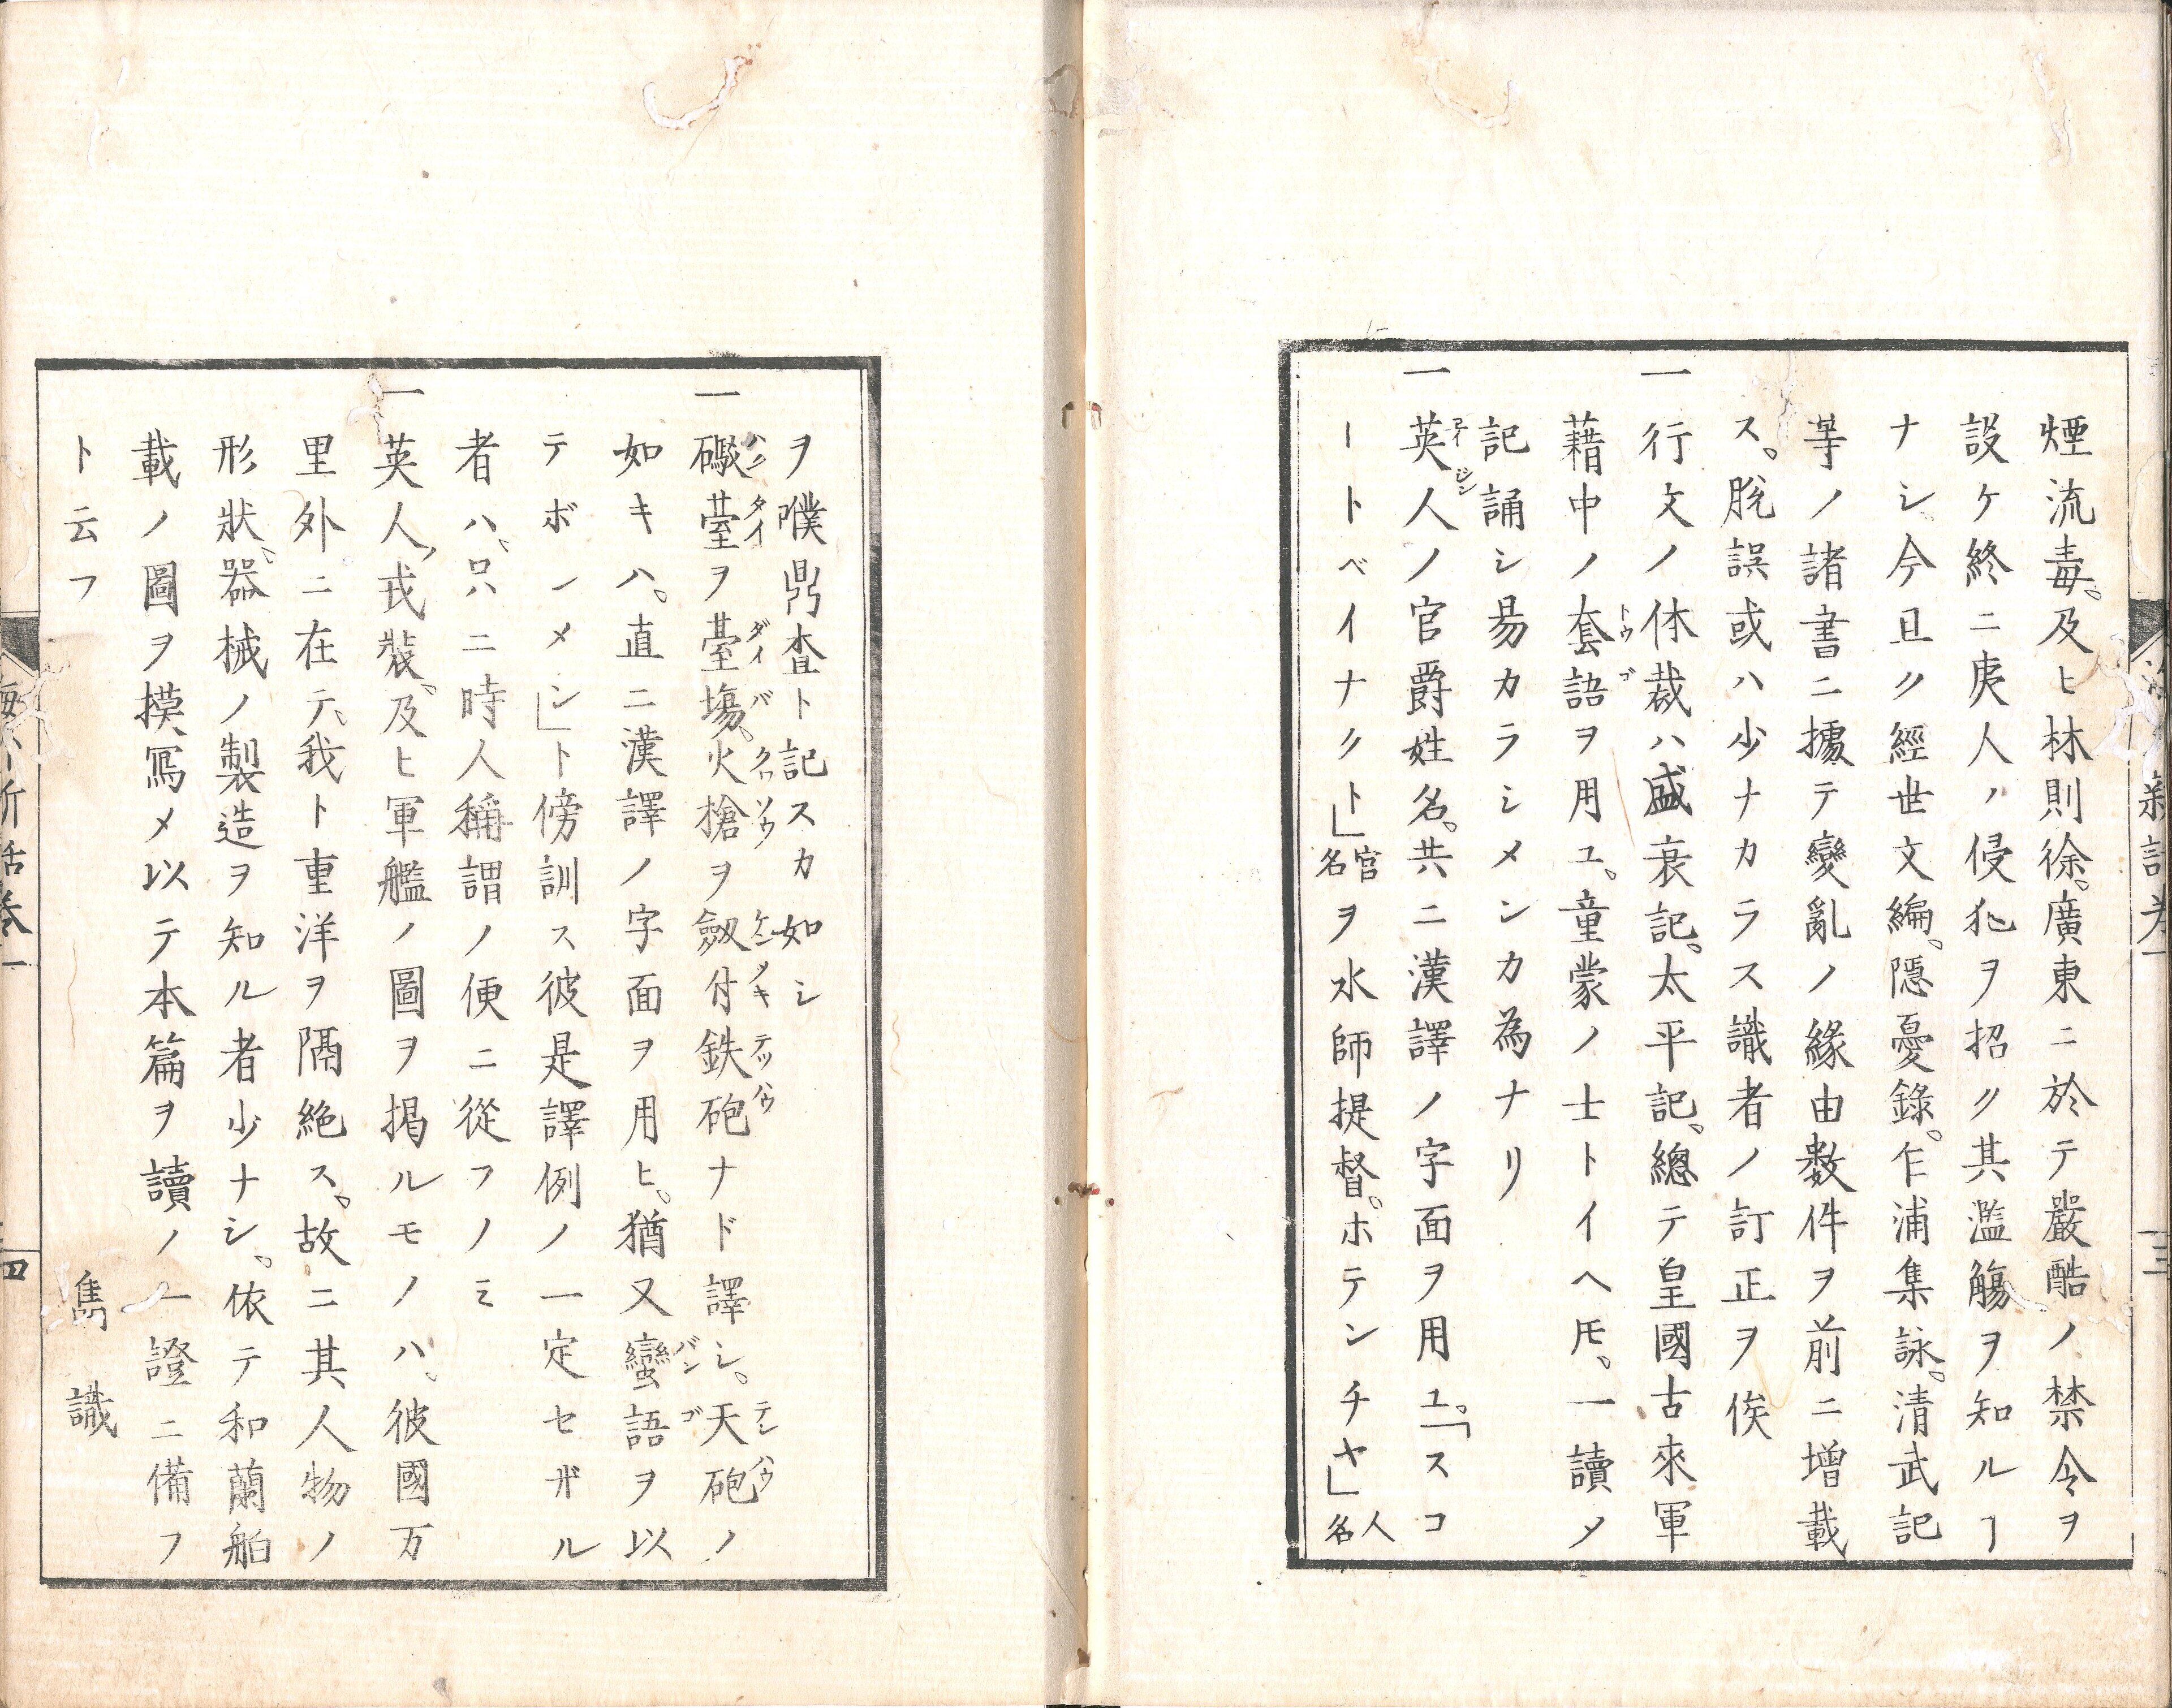 煙流毒。及ヒ林則徐。廣東ニ於テ嚴酷ノ禁令ヲ
設ケ終ニ庚人ノ侵犯ヲ招ク其濫觴ヲ知ルヿ
ナシ今且ク經世文編。隠憂錄。乍浦集詠。清武記
等ノ諸書ニ據テ變亂ノ緣由數件ヲ前ニ增載
ス。脱誤或ハ少ナカラス識者ノ訂正ヲ俟
一行文ノ体裁ハ盛衰記。太平記。總テ皇國古來軍
藉中ノ套語ヲ用ユ。童蒙ノ士トイヘ𪜈、一讀〆
記誦シ易カラシメンカ為ナリ
一英人ノ官爵姓名。共ニ漢譯ノ字面ヲ用ユ。「スコ
ートベイナクト」官名ヲ水師提督。ホテンチヤ」人名
ヲ噗鼎査ト記スカ如シ
一礮䑓ヲ臺塲、火槍ヲ劔付鉄砲ナド譯シ。天砲ノ
如キハ。直ニ漢譯ノ字面ヲ用ヒ。猶又蠻語ヲ以
テボンメン」ト傍訓ス彼是譯例ノ一定セザル
者ハ、只ニ時人稱謂ノ便ニ從フノミ
一英人、戎裝、及ヒ軍艦ノ圖ヲ掲ルモノハ、彼國万
里外ニ在テ、我ト重洋ヲ隔絶ス。故ニ其人物ノ
形狀、器械ノ製造ヲ知ル者少ナシ。依テ和蘭舶
載ノ圖ヲ摸寫〆以テ本篇ヲ讀ノ一證ニ備フ
ト云フ
雋識
四